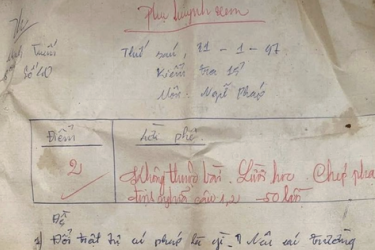 Phụ huynh xem
Tuấn
Thứ sáu, 31 - 1 - 97
Số 40
Kiểm tra 15'
Môn: Ngữ Pháp
Điểm
Lời phê
2
Không thuộc bài. Lười học. Chép phạt
định nghĩa câu 1,2 50 lần
Đề
1) Đổi trật tự cú pháp là gì. Nêu các trường